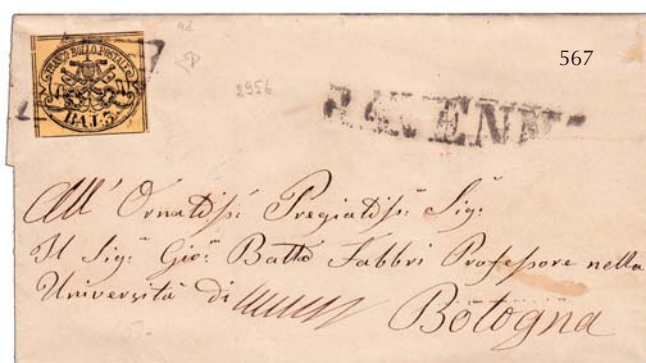 567
42
2956
FRANCO BOLLO POSTALE
BAJ. 3
RAVENN
All' Ornatiss: Pregiatiss: Sig:
Il Sig: Gio: Batta Fabbri Professore nella
Università di
Bologna